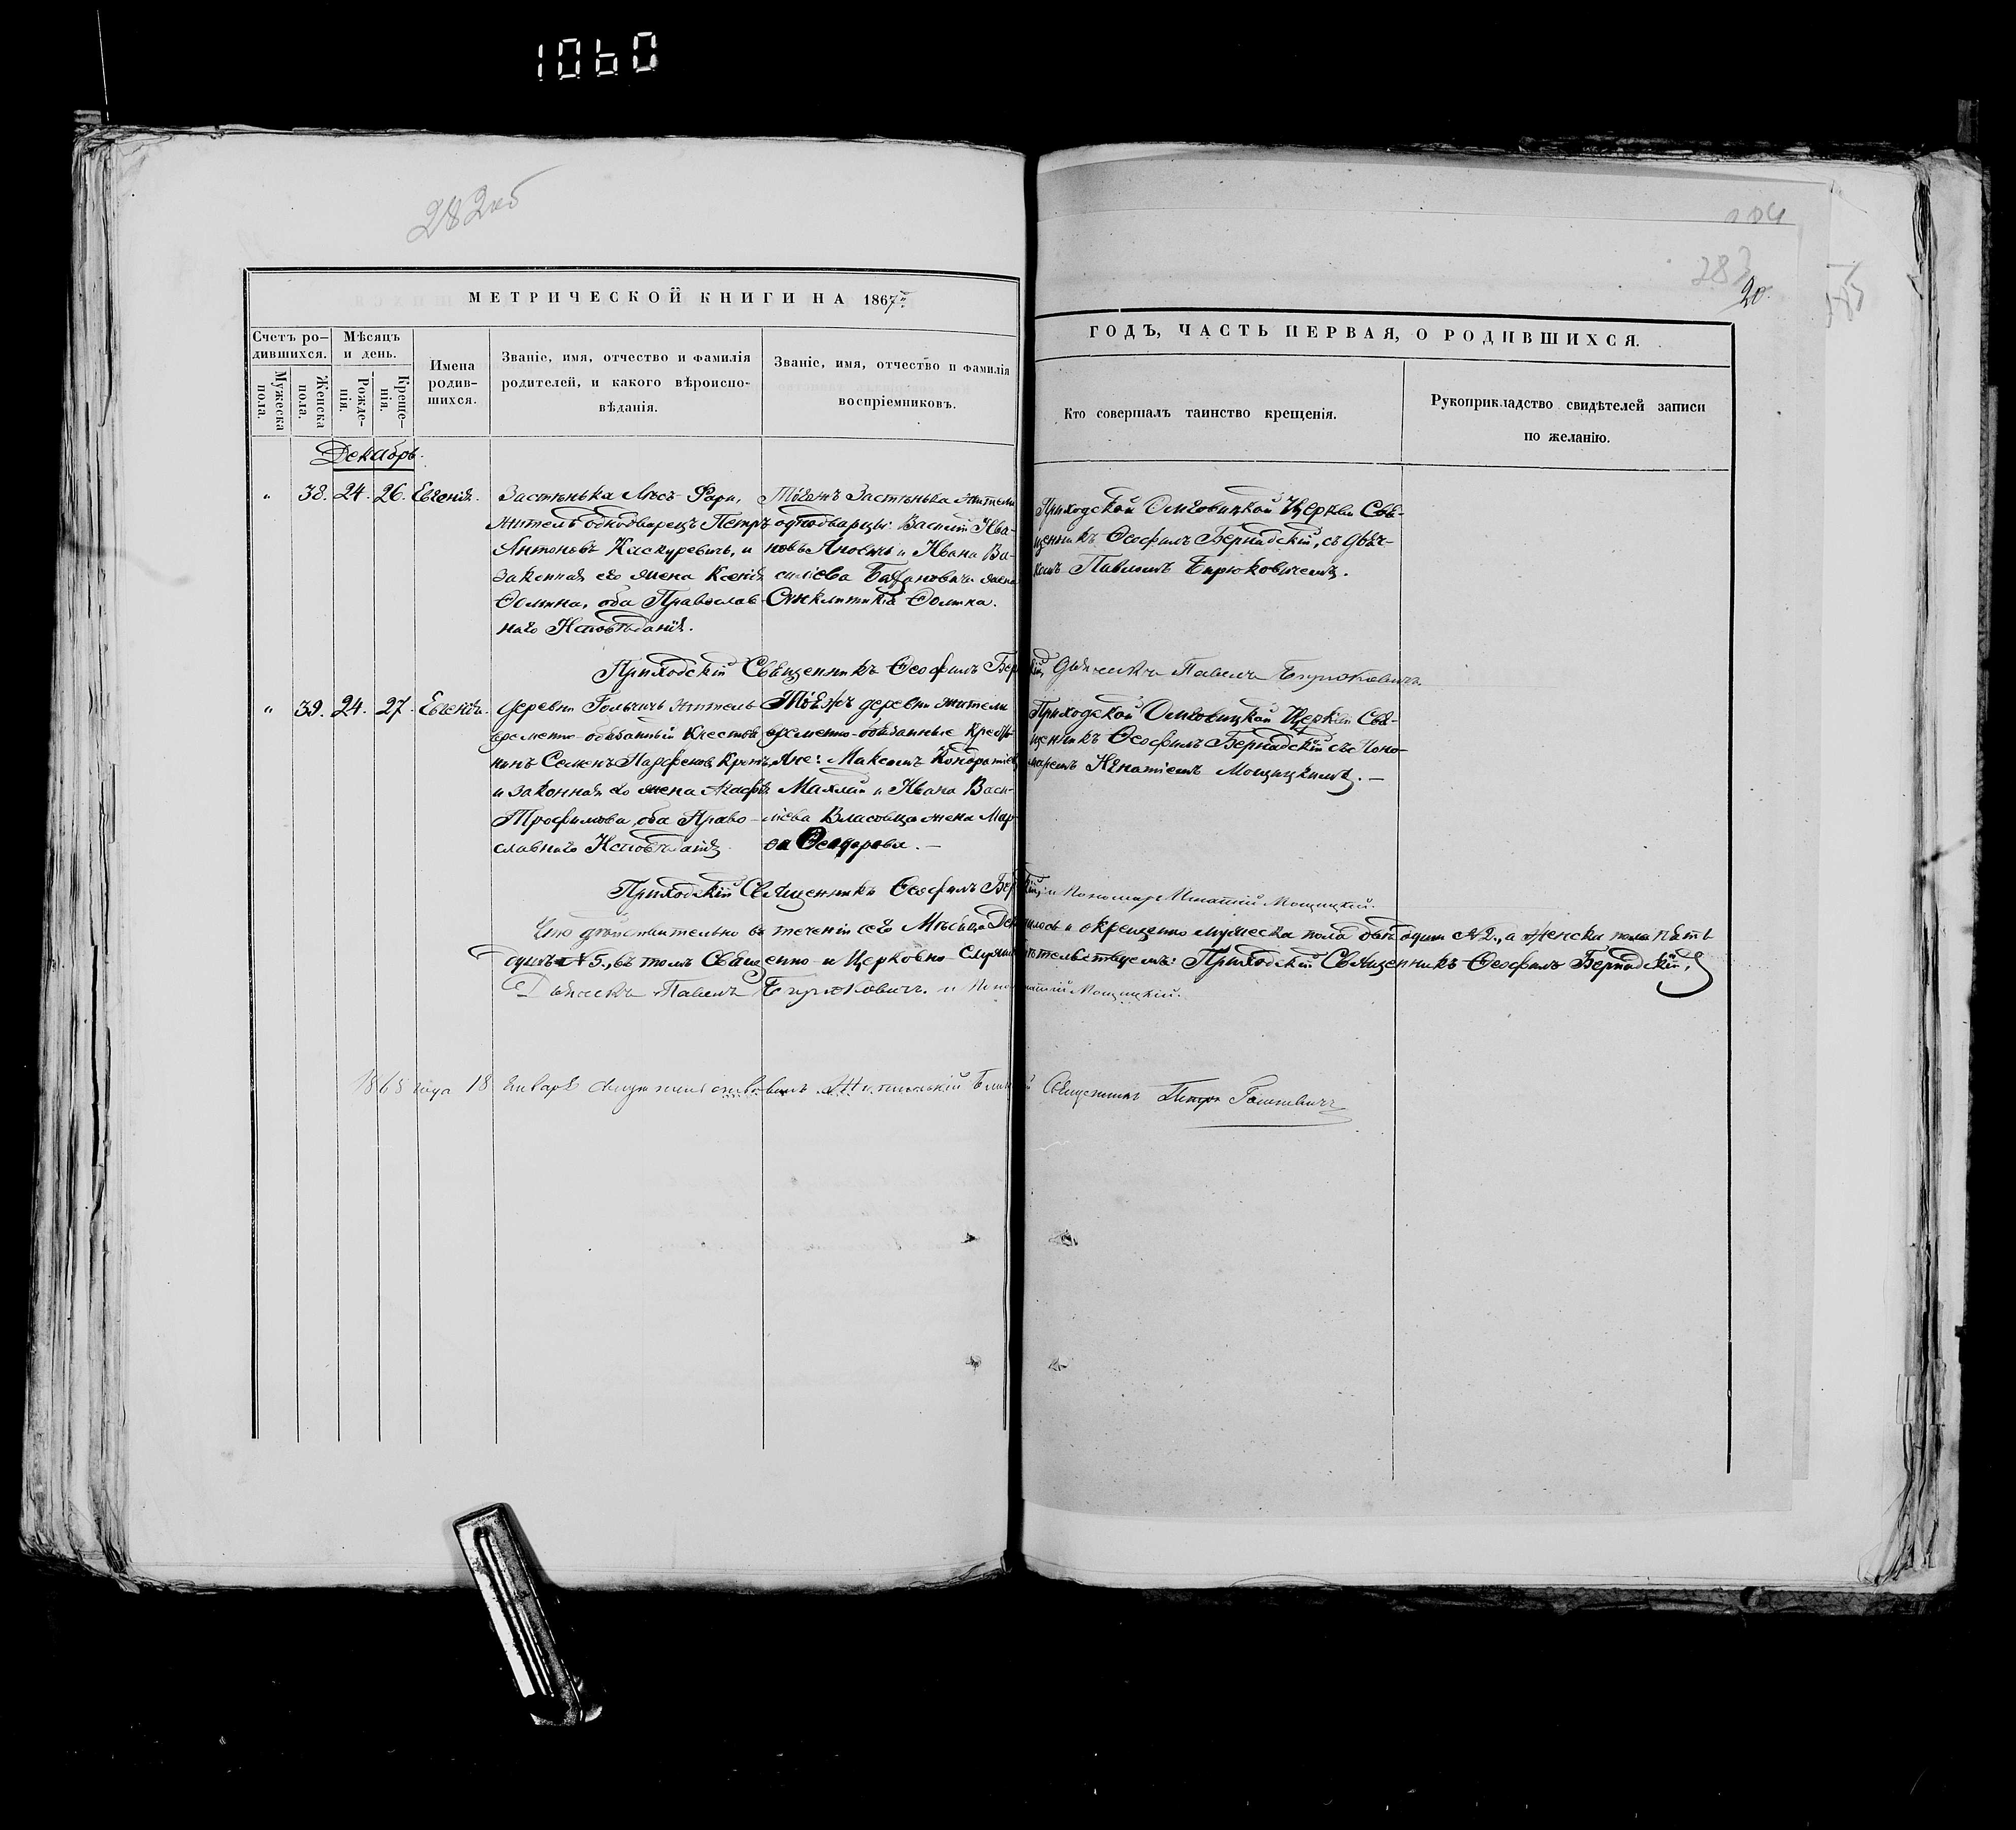 1060
282об
283
20.
МЕТРИЧЕСКОЙ КНИГИ НА 1867й
ГОДЪ, ЧАСТЬ ПЕРВАЯ, О РОДИВШИХСЯ.
Счетъ ро-
дившихся.
Мужеска
пола.
Женска
пола.
Мѣсяцъ
и день.
Рожде-
нія.
Креще-
нія.
Имена
родив-
шихся.
Званіе, имя, отчество и фамилія
родителей, и какого вѣроиспо-
вѣданія.
Званіе, имя, отчество и фамилія
воспріемниковъ.
Кто совершалъ таинство крещенія.
Рукоприкладство свидѣтелей записи
по желанію.
Декабрь.
" 38. 24. 26. Евгенія.
Застѣнька Лѣсъ-
житель однодворецъ Петръ
Антоновъ и
законная его жена Ксенія
Ѳомина, оба Православ-
наго Исповѣданія.
Тогожъ Застѣнька жители
однодворцы: Василій Ива-
новъ и Ивана Ва-
силіева жена
Синклитикія Ѳомина.
Приходской Церкви Свя-
щенникъ Ѳеофилъ Бернадскій, съ дьяч-
комъ Павломъ Бирюковичемъ.
Приходскій Священникъ Ѳеофилъ Дьячекъ Павелъ Бирюковичъ
" 39. 24. 27. Евгенія.
деревни житель
временно-обязанный Крестья-
нинъ Семенъ Парфеновъ
и законная его жена Агафія
Трофимова, оба Право-
славнаго Исповѣданія.
Тояжъ деревни жители
временно-обязанные Кресть-
яне: Максимъ Кондратіевъ
и Ивана Васи-
ліева жена Мар-
ѳа Ѳеодорова. -
Приходской Церкви Свя-
щенникъ Ѳеофилъ Бернадскій съ Поно-
маремъ Игнатіемъ Мощицкимъ. -
Приходскій Священникъ Ѳеофилъ и Пономарь Игнатій Мощицкій.
Что дѣйствительно въ теченіи сего Мѣсяца и окрещено мужеска пола двѣ души №2., а женска пола пять
душъ №5., въ томъ Священно- и Церковно- Приходскій Священникъ Ѳеофилъ Бернадскій,
Дьячекъ Павелъ Бирюковичъ. и Мощицкій.
года 18 Января Священникъ Петръ